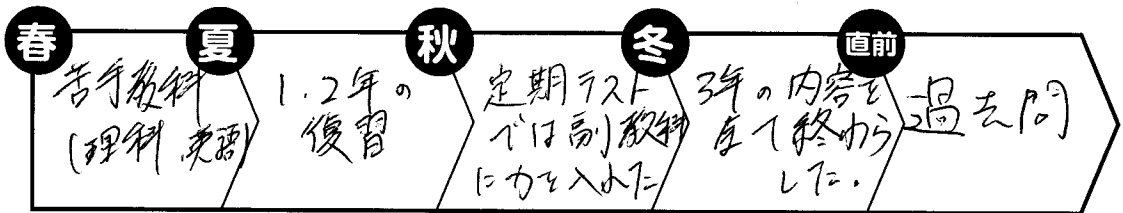 春
苦手教科
(理科 英語)
夏
1.2年の
復習
秋
定期テスト
では副教科
に力を入れた
冬
3年の内容を
全て終わら
した。
直前
過去問